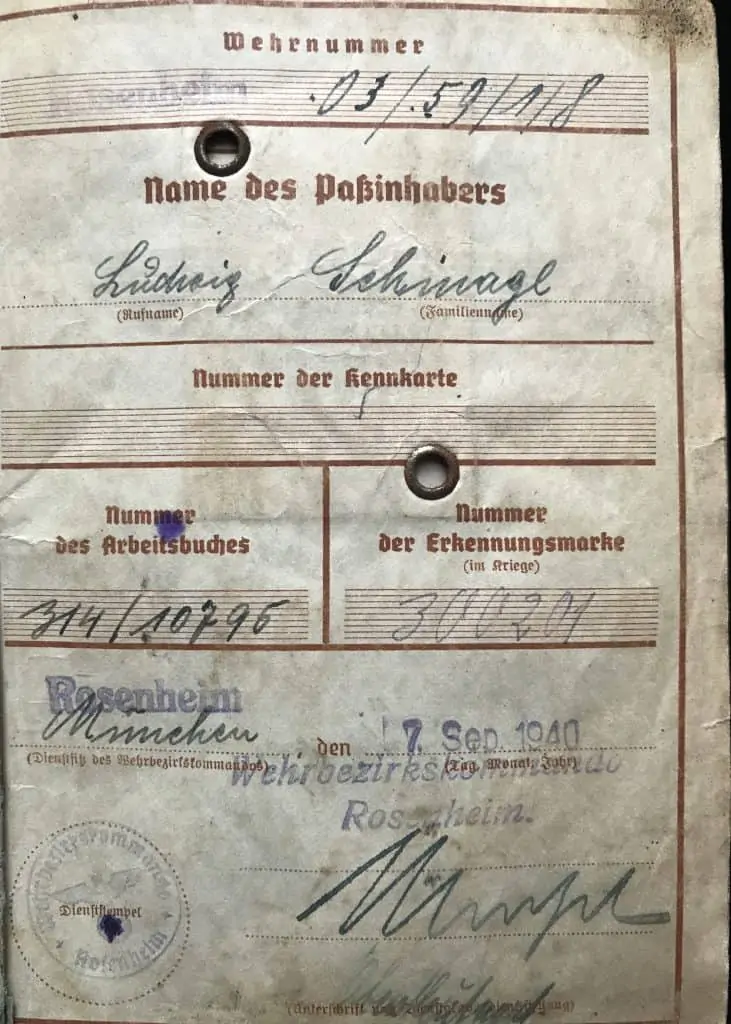 Wehrnummer
Rosenheim 03/59/1/8
Name des Paßinhabers
Ludwig Schinagl
(Rufname) (Familienname)
Nummer der Kennkarte
Nummer des Arbeitsbuches
Nummer der Erkennungsmarke
(im Kriege)
314/10796 300201
Rosenheim
München den 17. Sep. 1940
(Dienstsitz des Wehrbezirkskommandos) (Tag, Monat, Jahr)
Wehrbezirkskommando
Rosenheim.
Wehrbezirkskommando
Dienststempel
Rosenheim
(Unterschrift